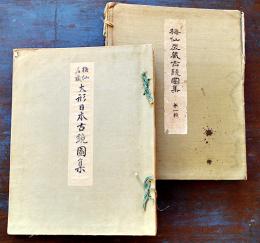 梅仙居蔵古鏡図集
第一輯
梅仙
居蔵
大形日本古鏡図集